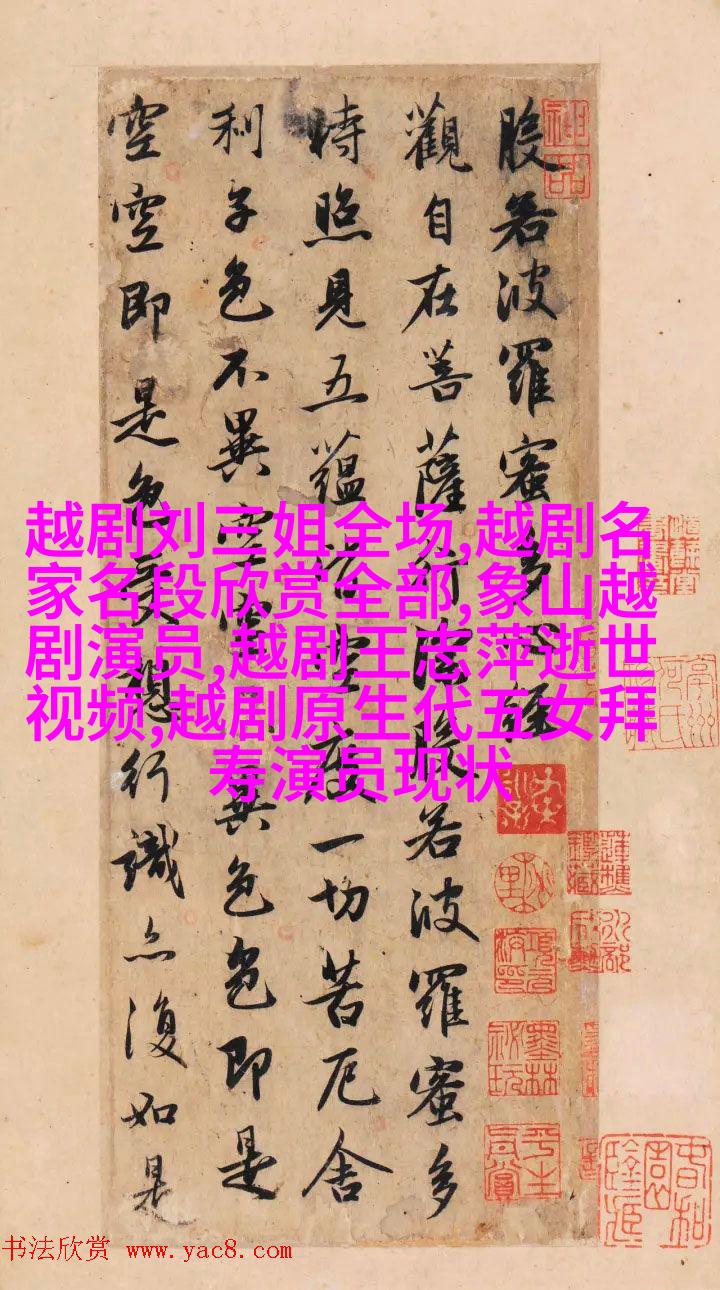 般若波羅蜜多心經
觀自在菩薩行深般若波羅蜜多
時照見五蘊皆空度一切苦厄舍
利子色不異空空不異色色即是
空空即是色受想行識亦復如是
神品
墨林
秘玩
越剧刘三姐全场,越剧名
家名段欣赏全部,象山越
剧演员,越剧王志萍逝世
视频,越剧原生代五女拜
寿演员现状
书法欣赏 www.yac8.com